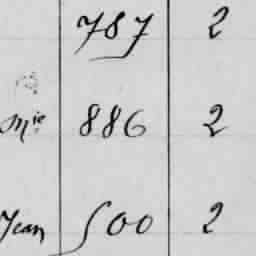 787 2
Mie 886 2
Jean 500 2